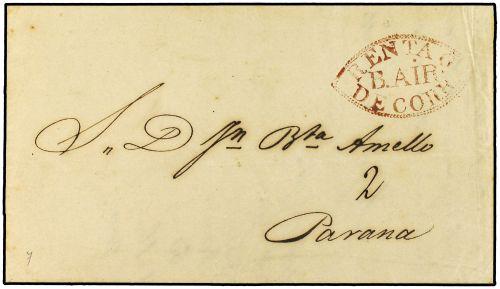 RENTA G
B. AIR
DE CORR
S.n D Jn Bta Amello
2
Parana